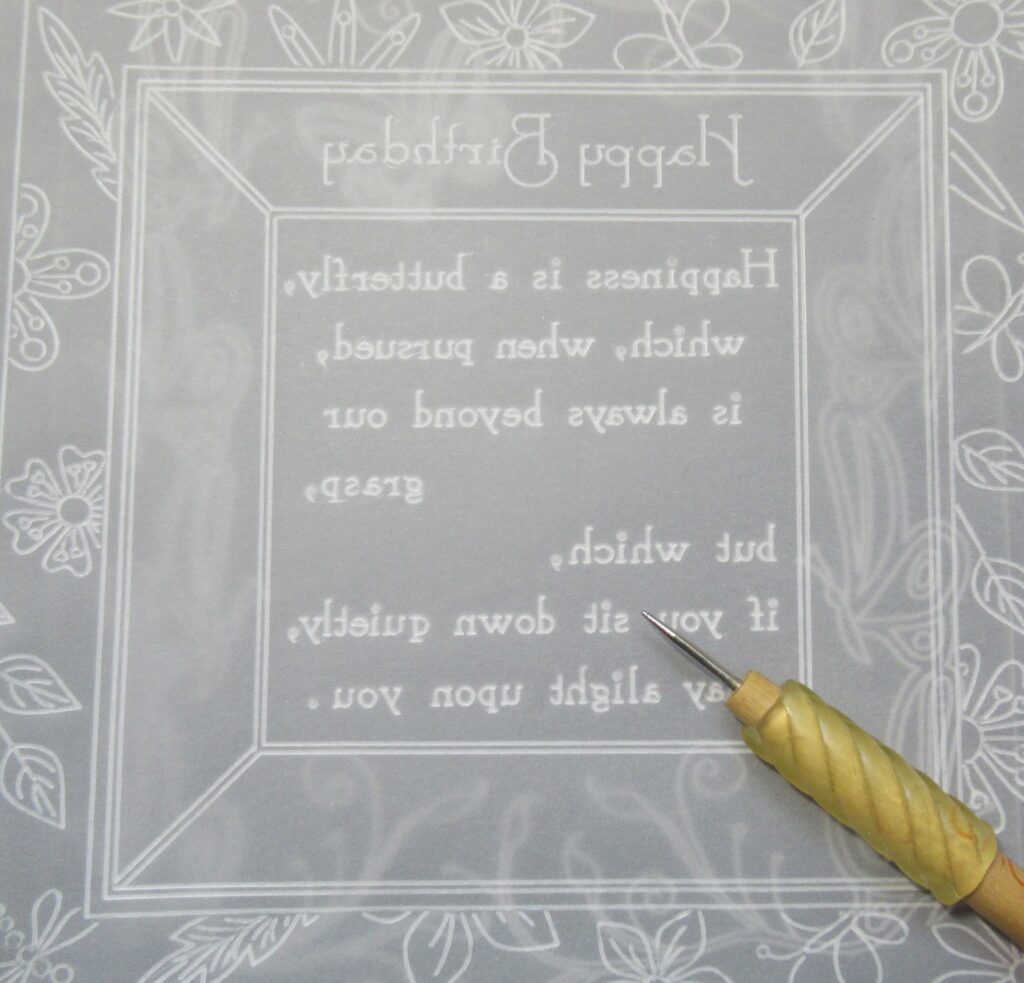 Happy Birthday
Happiness is a butterfly,
which, when pursued,
is always beyond our
grasp,
but which,
if you sit down quietly,
alight upon you.